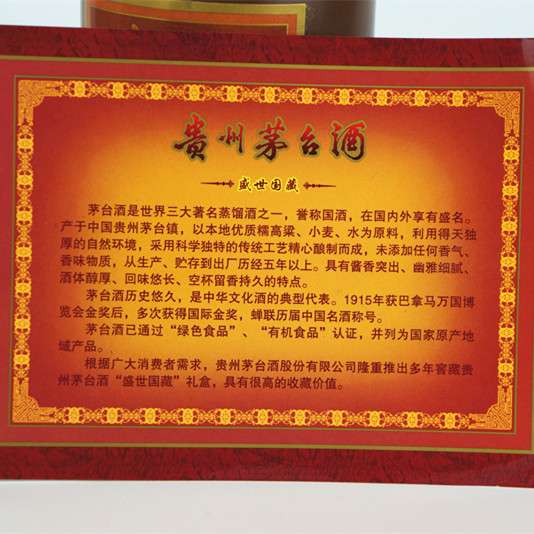 贵州茅台酒
盛世国藏
茅台酒是世界三大著名蒸馏酒之一，誉称国酒，在国内外享有盛名。
产于中国贵州茅台镇，以本地优质糯高粱、小麦、水为原料，利用得天独
厚的自然环境，采用科学独特的传统工艺精心酿制而成，未添加任何香气、
香味物质，从生产、贮存到出厂历经五年以上。具有酱香突出、幽雅细腻、
酒体醇厚、回味悠长、空杯留香持久的特点。
茅台酒历史悠久，是中华文化酒的典型代表。1915年获巴拿马万国博
览会金奖后，多次获得国际金奖，蝉联历届中国名酒称号。
茅台酒已通过“绿色食品”、“有机食品”认证，并列为国家原产地
域产品。
根据广大消费者需求，贵州茅台酒股份有限公司隆重推出多年窖藏贵
州茅台酒“盛世国藏”礼盒，具有很高的收藏价值。